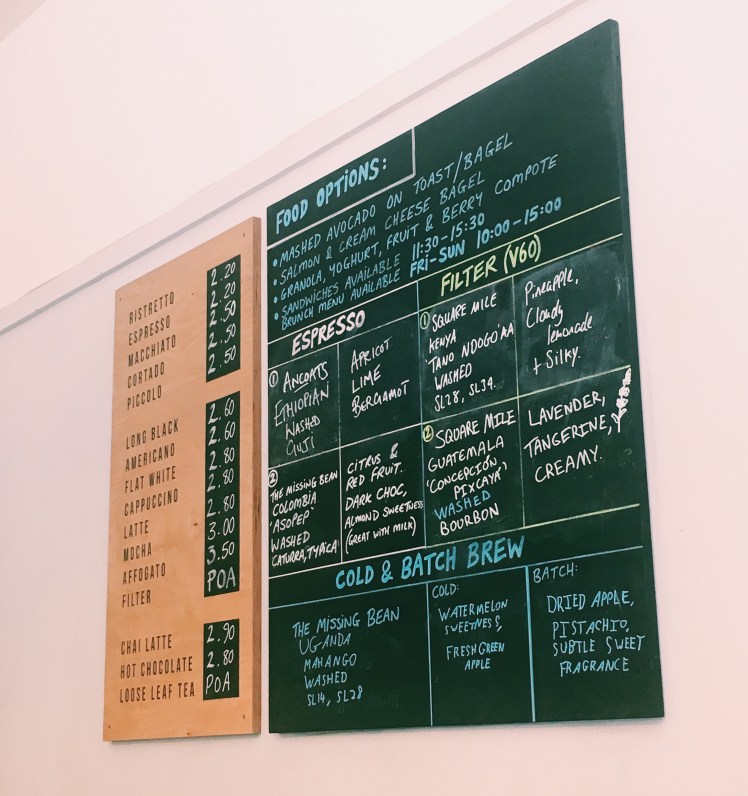 RISTRETTO 2.20
ESPRESSO 2.20
MACCHIATO 2.50
CORTADO 2.50
PICCOLO 2.50
LONG BLACK 2.60
AMERICANO 2.60
FLAT WHITE 2.80
CAPPUCCINO 2.80
LATTE 2.80
MOCHA 3.00
AFFOGATO 3.50
FILTER POA
CHAI LATTE 2.90
HOT CHOCOLATE 2.80
LOOSE LEAF TEA POA
FOOD OPTIONS:
• MASHED AVOCADO ON TOAST/BAGEL
• SALMON & CREAM CHEESE BAGEL
• GRANOLA, YOGHURT, FRUIT & BERRY COMPOTE
• SANDWICHES AVAILABLE 11:30-15:30
BRUNCH MENU AVAILABLE FRI-SUN 10:00-15:00
ESPRESSO
① ANCOATS
ETHIOPIAN
WASHED
GUJI
APRICOT
LIME
BERGAMOT
②
THE MISSING BEAN
COLOMBIA
'ASOPEP'
WASHED
CATURRA, TYPICA
CITRUS &
RED FRUIT.
DARK CHOC,
ALMOND SWEETNESS
(GREAT WITH MILK)
FILTER (V60)
① SQUARE MILE
KENYA
'TANO NDOGO' AA
WASHED
SL28, SL34.
Pineapple,
Cloudy
lemonade
+ Silky.
② SQUARE MILE
GUATEMALA
'CONCEPCIÓN
PIXCAYÁ'
WASHED
BOURBON
LAVENDER,
TANGERINE,
CREAMY.
COLD & BATCH BREW
THE MISSING BEAN
UGANDA
MAHANGO
WASHED
SL14, SL28
COLD:
WATERMELON
SWEETNESS,
FRESH GREEN
APPLE
BATCH:
DRIED APPLE,
PISTACHIO,
SUBTLE SWEET
FRAGRANCE